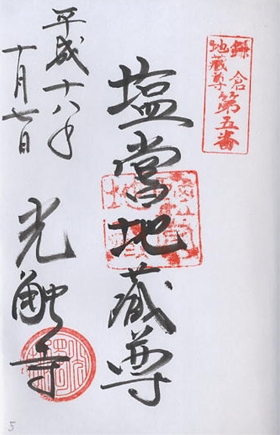 鎌倉
地蔵尊
第五番
塩嘗地蔵尊
平成十八年
十月七日
光触寺
5